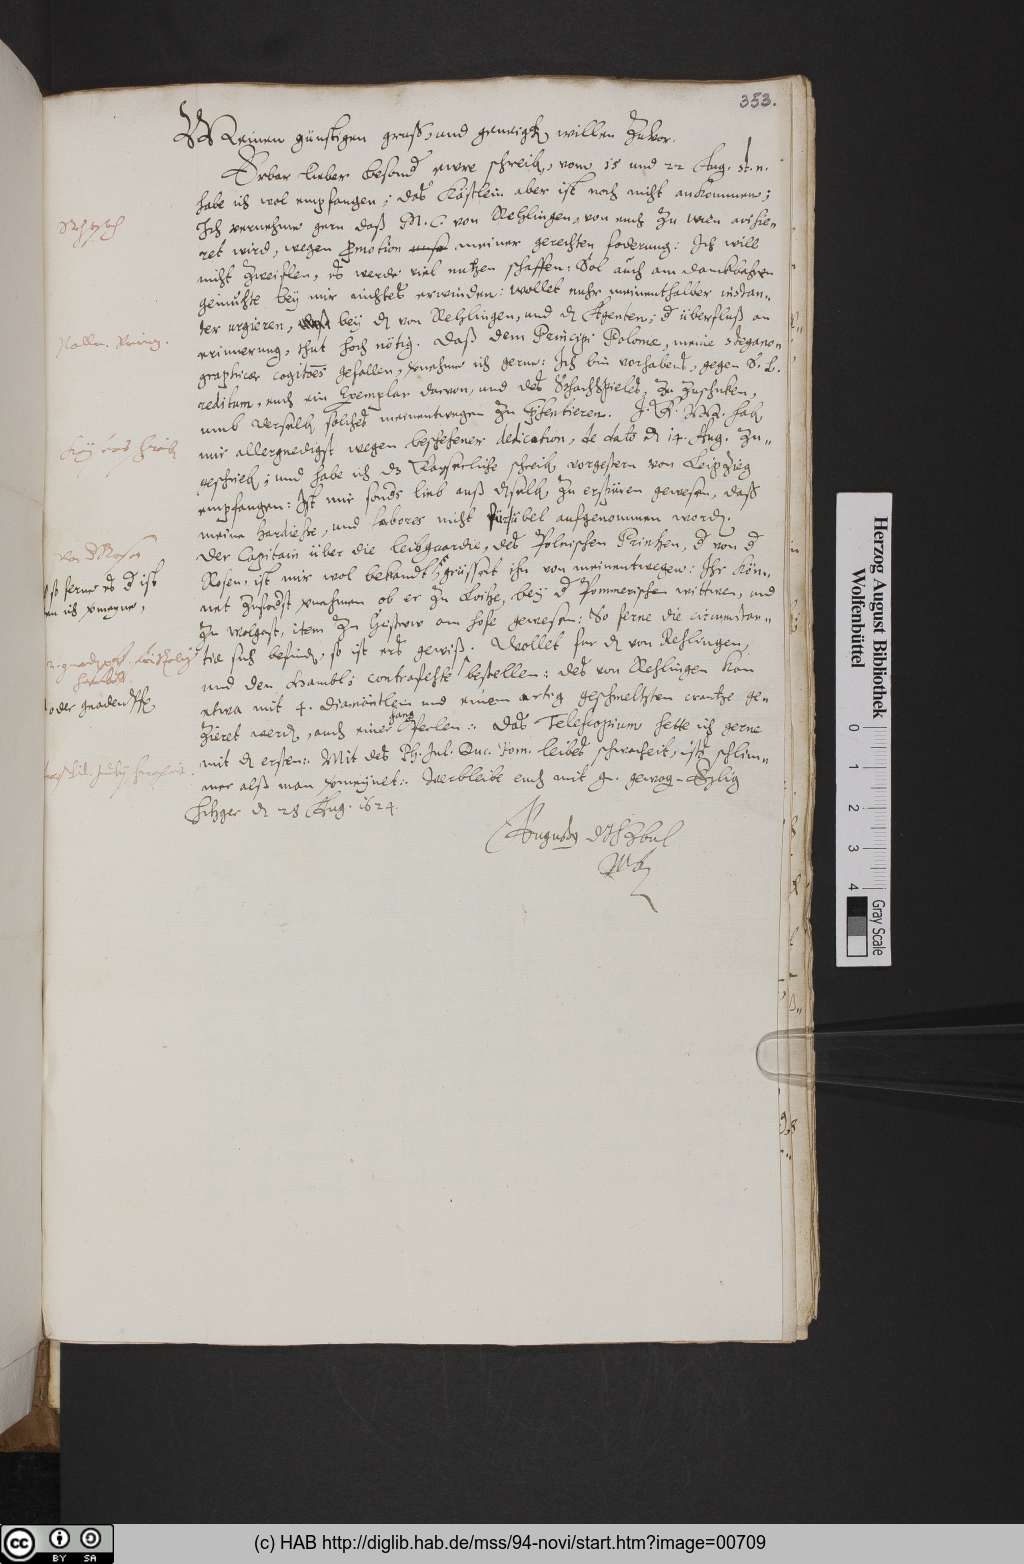 353.
Meinen günstigen gruß, und geneigten willen zuvor.
Erbar lieber besonder ewre schreiben, vom 15 und 22 Aug. st. n.
habe ich wol empfangen; das Kästlein aber ist noch nicht ankommen;
Ich vernehme gern daß M. C. von Rehlingen, von euch zu wien avisie-
ret wird, wegen promotion meiner gerechten foderung: Ich will
nicht zweiflen, es werde viel nutzen schaffen: Sol auch am danckbahren
gemühte bey mir nichtes erwinden: wollet nuhr meinenthalber instan-
ter urgieren, bey dem von Rehlingen, und den Agenten; der überfluß an
erinnerung, thut hoch nötig. Daß dem Principi Poloniæ, meine stegano-
graphicæ cogitationes gefallen, vernehme ich gerne: Ich bin vorhabens, gegen
reditum, euch ein Exemplar davon, und des Schachspieles, zu zuschicken,
umb derselben solches meinentwegen zu præsentieren. I. K. M. haben
mir allergnedigst wegen beschehener dedication, de dato den 14. Aug. zu-
geschrieben; und habe ich das Kayserliche schreiben vorgestern von Leipzieg
empfangen: Ist mir sonders lieb auß demselben zu erspüren gewesen, daß
meine hardiesse, und labores nicht für übel aufgenommen worden.
Der Capitain über die leibguardie, des Polnischen Printzen, der von der
Rosen, ist mir wol bekandt; grüsset ihn von meinentwegen: Ihr kön-
net zuforderst vernehmen ob er zu Loitze, bey der Pommerischen wittwen, und
zu wolgast, item zu Güstrow am hofe gewesen: So ferne die circumstan-
tiæ sich befinden, so ist ers gewiß. Wollet for den von Rehlingen,
und den contrafehte bestellen: des von Rehlingen kan
etwa mit 4. diamäntlein und einem artig geschmeltzten crantze ge-
zieret werden, auch einer Perlen: Das Telescopium hette ich gerne
mit dem ersten: Mit des Ph. Jul. Duc. Pom. leibes schwacheit, ists schlim-
mer alß man vermeynet: Verbleibe euch mit gn. gewogen. Eylig
Hitzger den 28 Aug. 1624.
Augustus
von der Rosen
so ferne es der ist
den ich vermeyne,
oder gnadenpfen.
Herzog August Bibliothek
Wolfenbüttel
0 1 2 3 4
Gray Scale
cc BY SA
(c) HAB http://diglib.hab.de/mss/94-novi/start.htm?image=00709